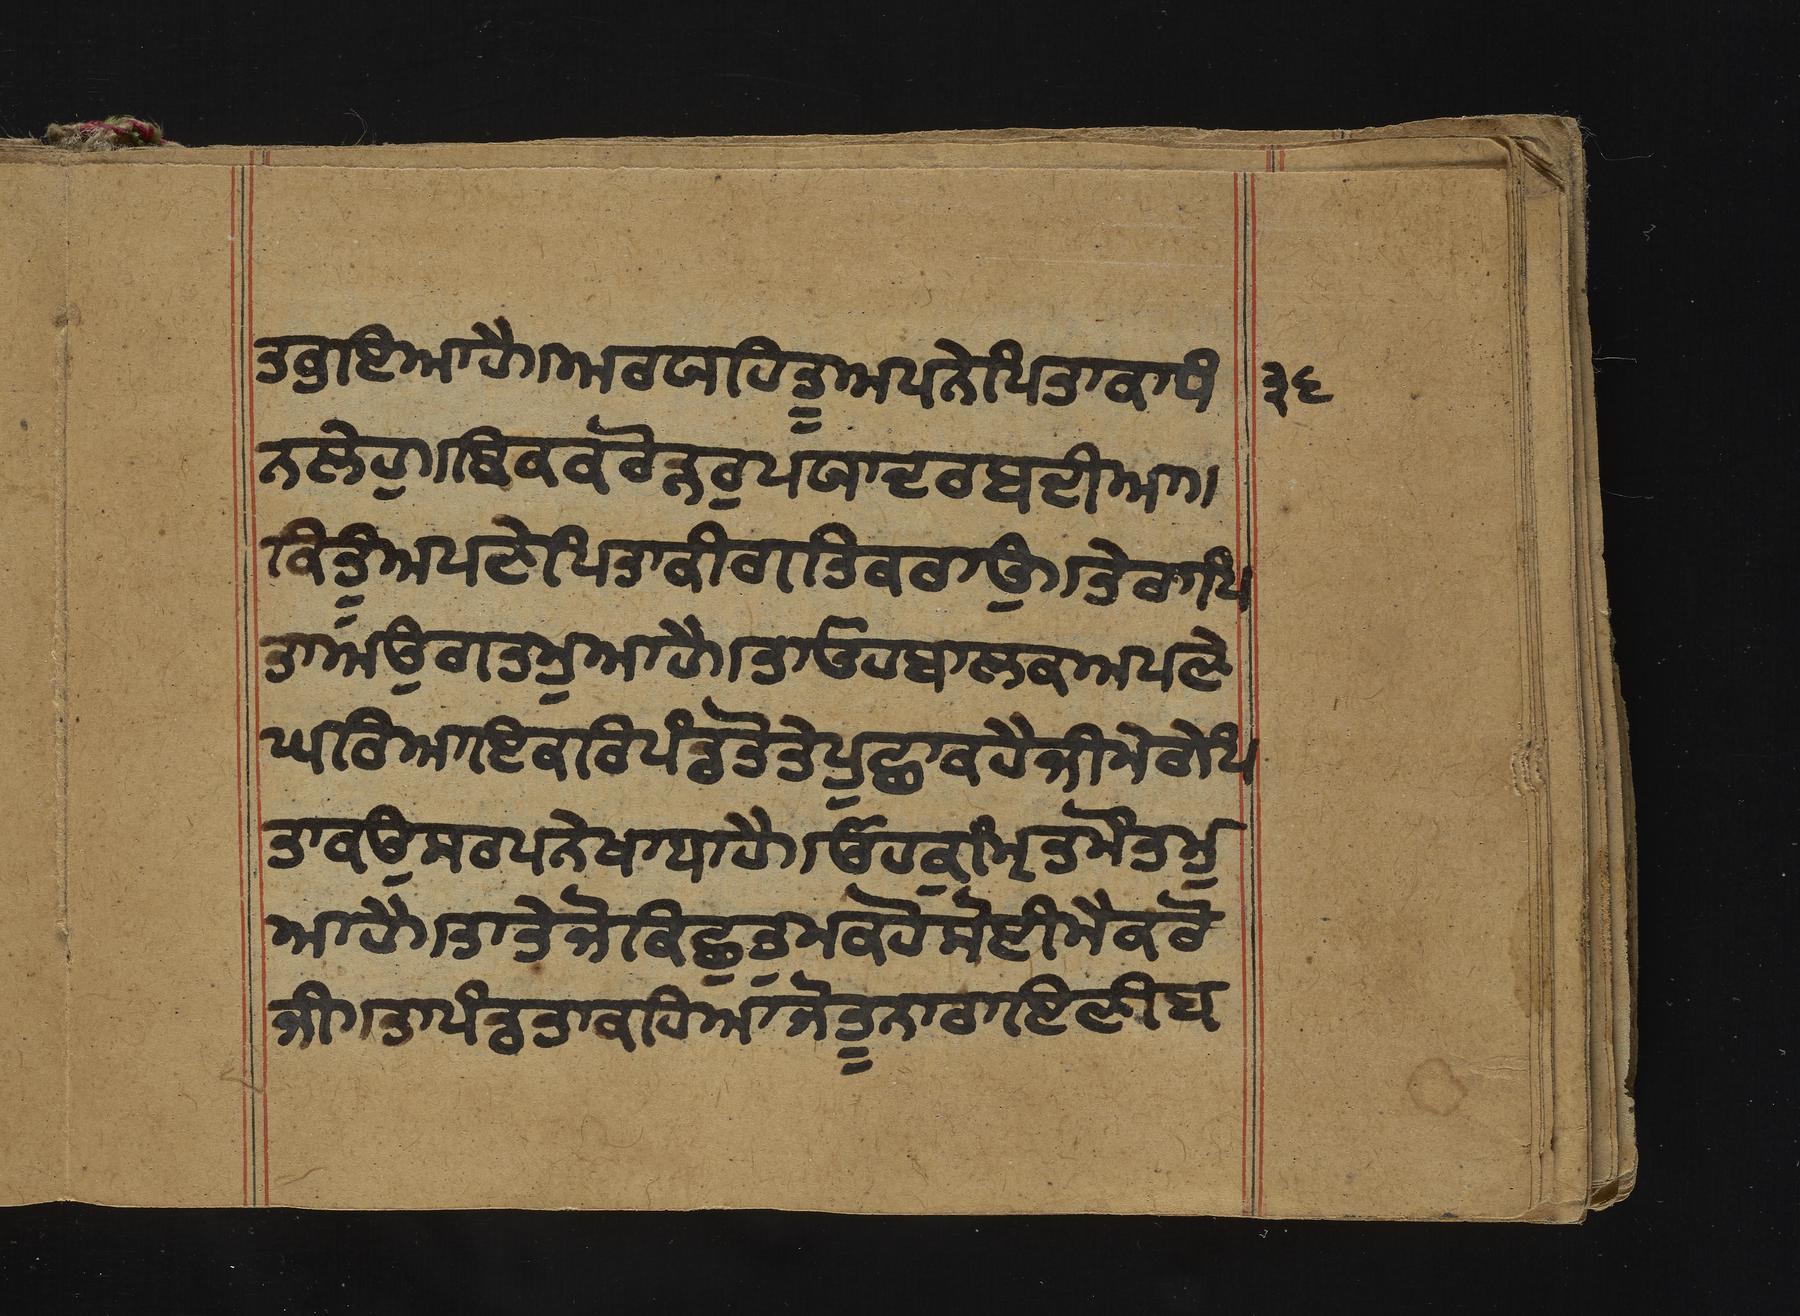 ਤਕੁਇਆਹੈ।ਅਰਯਹਿਤੂਅਪਨੇਪਿਤਾਕਾਧੰ ੩੬
ਨਲੇਹੁ।ਇਕਕਰੋੜਰੁਪਯਾਦਰਬਦੀਆ।
ਕਿਤੂੰਅਪਣੇਪਿਤਾਕੀਗਤਿਕਰਾਉਂ।ਤੇਰਾਪਿ
ਤਾਅਉਗਤਮੁਆਹੈ।ਤਾਓਹਬਾਲਕਅਪਣੇ
ਘਰਿਆਇਕਰਿਪੰਡਤੋਤੇਪੁਛਾਕਹੈਜੀਮੇਰੇਪਿ
ਤਾਕਉਸਰਪਨੇਖਾਧਾਹੈ।ਓਹਕੁਮਿ੍ਤਮੌਤਮੁ
ਆਹੈ।ਤਾਤੇਜੋਕਿਛੁਤੁਮਕਹੋਸੋਈਮੈਕਰੋ
ਜੀ।ਤਾਪੰਡਤਾਕਹਿਆਜੋਤੂਨਾਰਾਇਣੀਬ